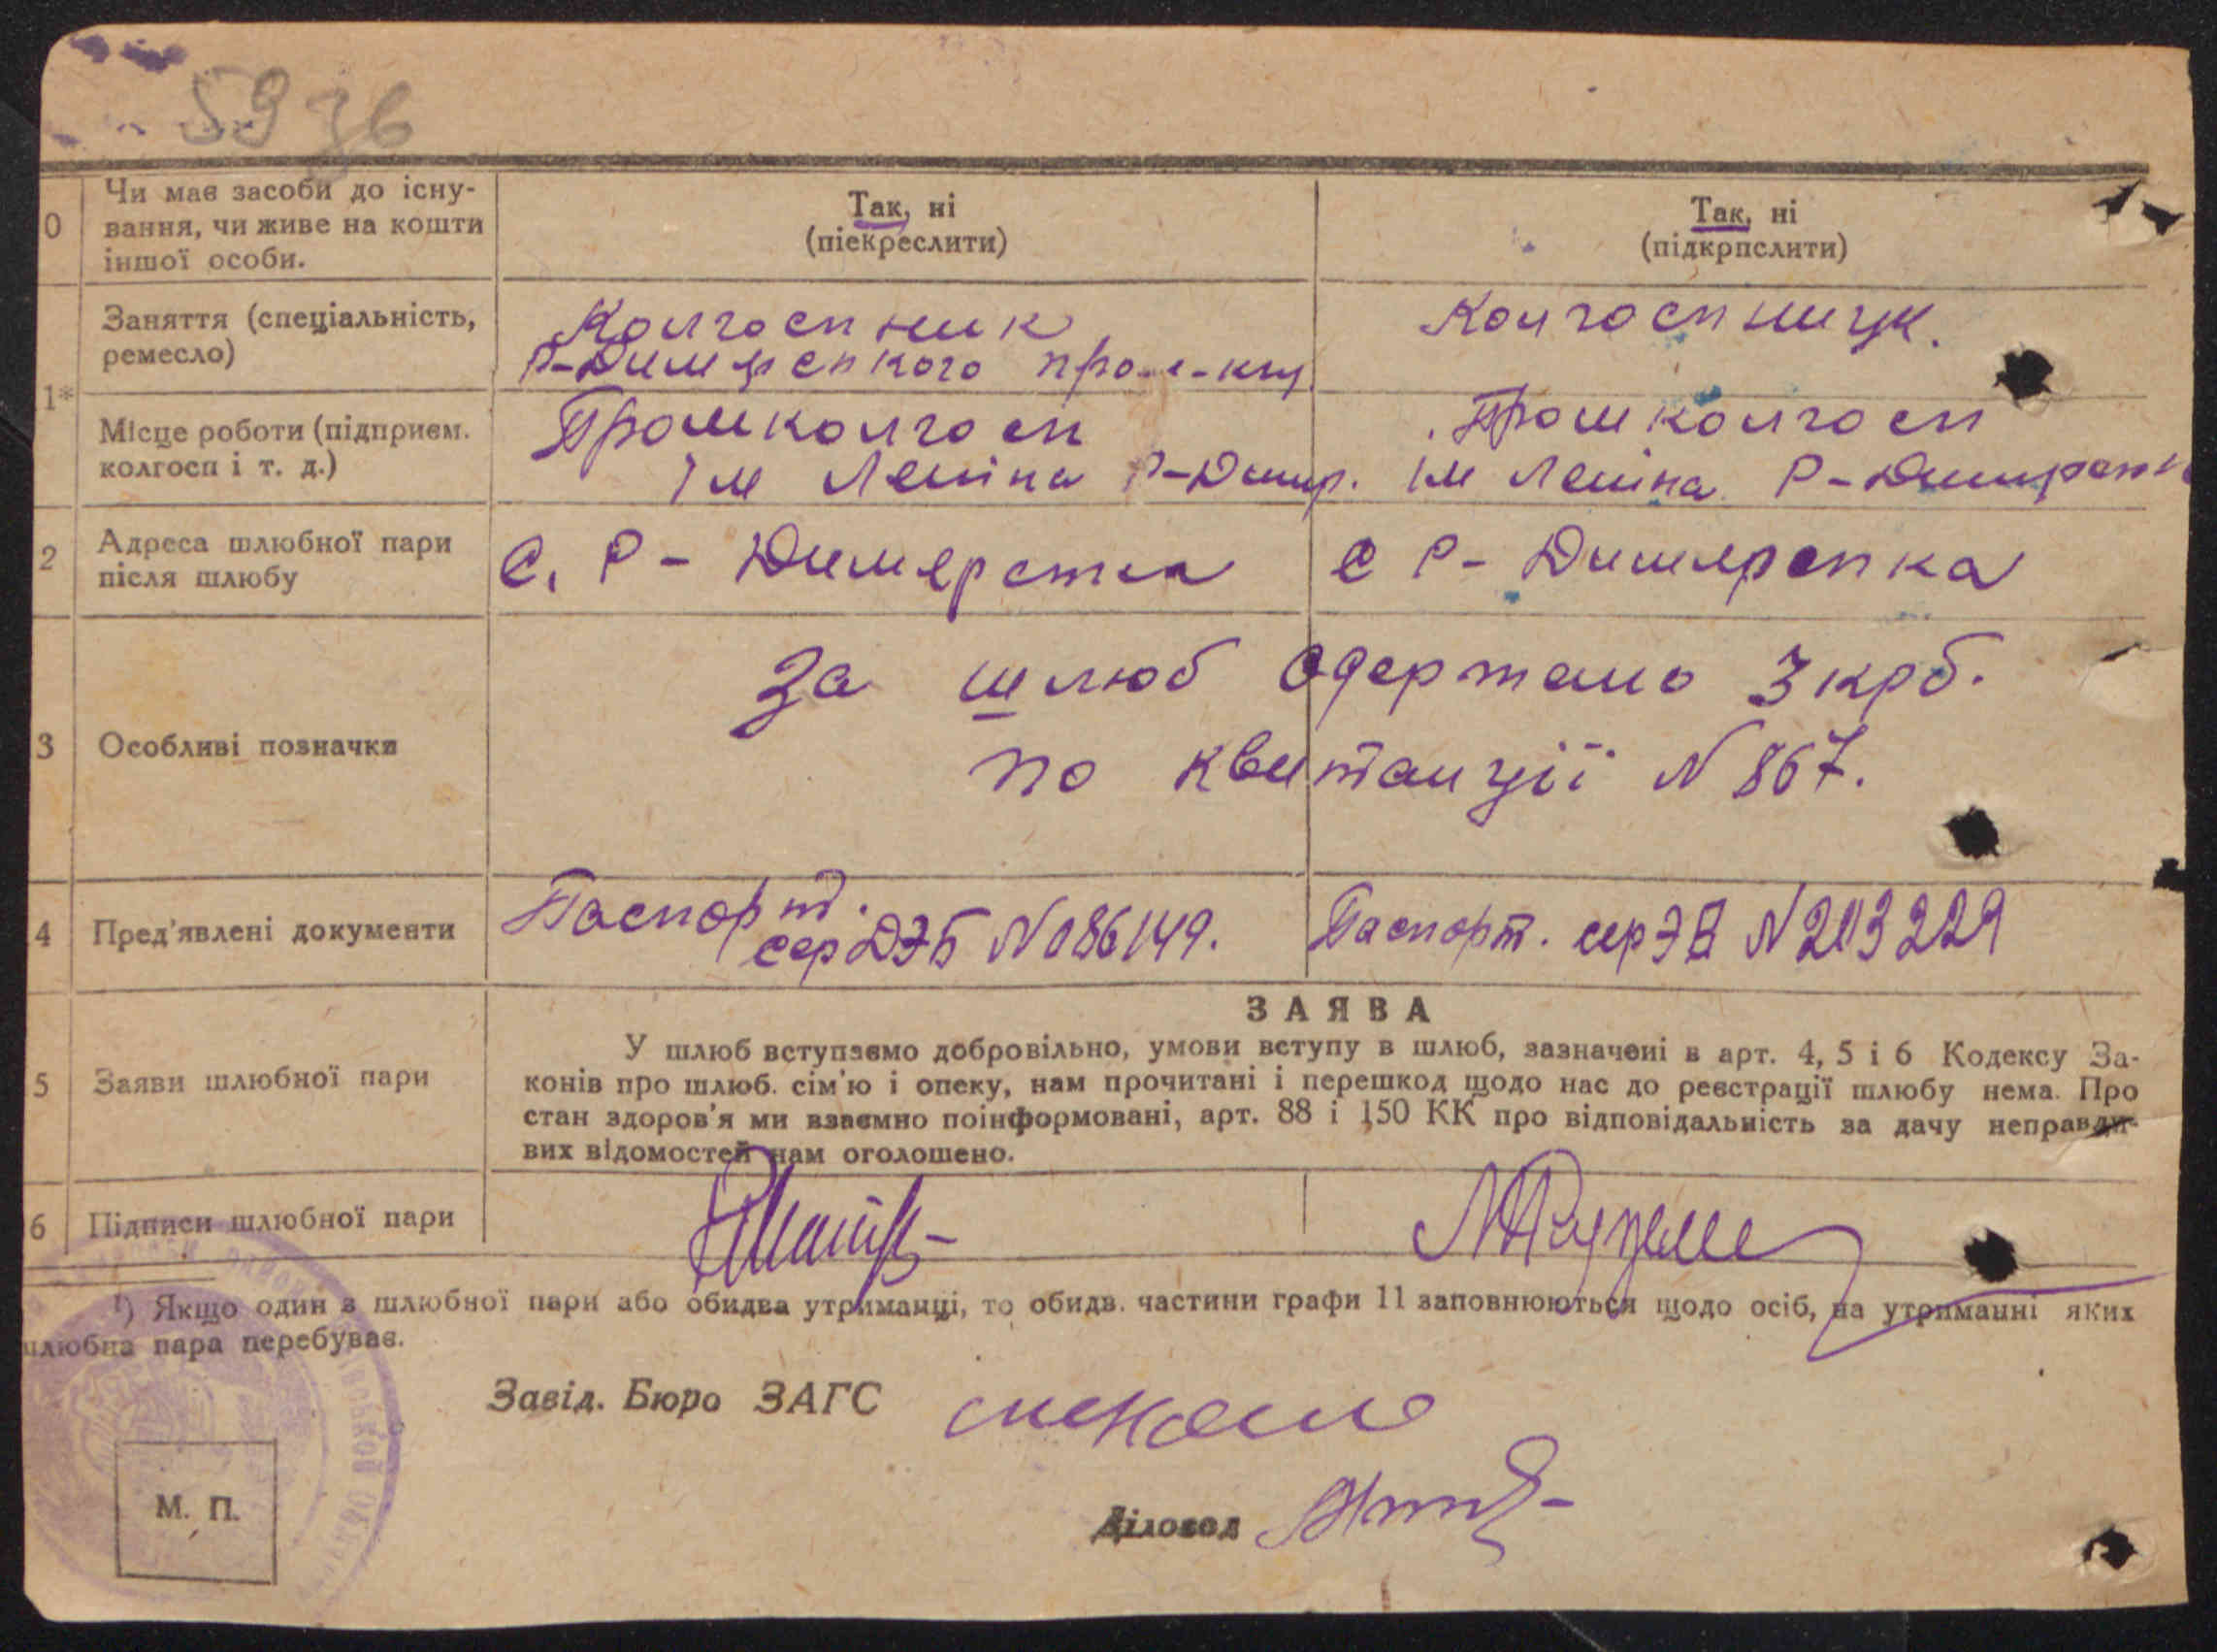 5936
0 Чи має засоби до існу-
вання, чи живе на кошти
іншої особи.
Так, ні
(піекреслити)
Так, ні
(підкрпслити)
1* Заняття (спеціальність,
ремесло)
Колгоспник
Р-Димерського
Колгоспниця.
Місце роботи (підприєм.
колгосп і т. д.)
Промколгосп
Ім Леніна Р-Димер.
Промколгосп
Ім Леніна Р-Димерська
2 Адреса шлюбної пари
після шлюбу
с. Р-Димерська
с Р-Димерська
3 Особливі позначки
За шлюб одержано 3 крб.
по квитанції N 867.
4 Пред'явлені документи
Паспорт.
сер ДЭБ N 086149.
Паспорт. сер ЭВ N 203229
5 Заяви шлюбної пари
ЗАЯВА
У шлюб вступаємо добровільно, умови вступу в шлюб, зазначені в арт. 4, 5 і 6 Кодексу За-
конів про шлюб. сім'ю і опеку, нам прочитані і перешкод щодо нас до реєстрації шлюбу нема. Про
стан здоров'я ми взаємно поінформовані, арт. 88 і 150 КК про відповідальність за дачу неправди-
вих відомостей нам оголошено.
6 Підписи шлюбної пари
¹) Якщо один з шлюбної пари або обидва утриманці, то обидв. частини графи 11 заповнюються щодо осіб, на утриманні яких
шлюбна пара перебуває.
Завід. Бюро ЗАГС
Діловод
М. П.